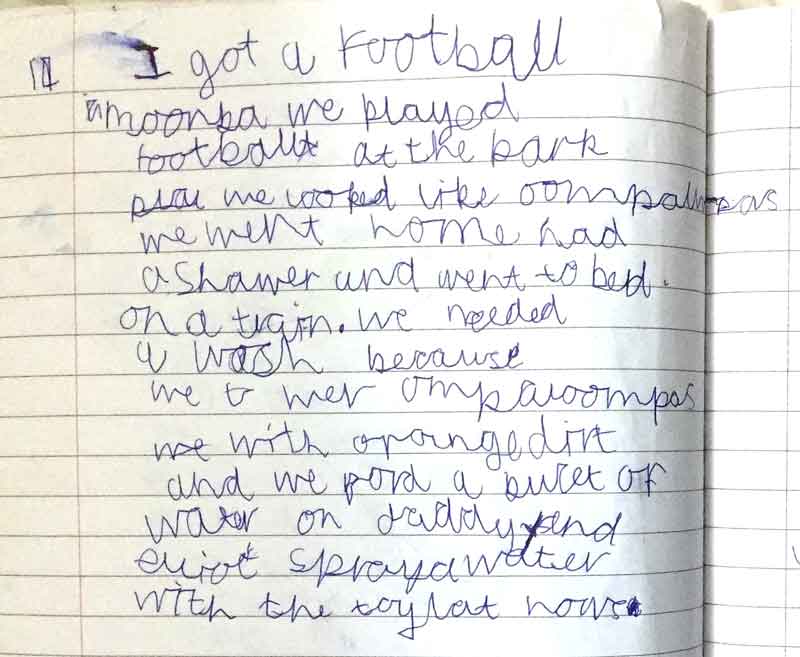 I got a football
moonba we played
football at the bark
we looked like oompalumpas
we went home had
a Shawer and went to bed.
on a train. we needed
a wash because
we wer ompaloompas
me with orange dirt
and we pord a bucet of
water on daddy and
eliot sprayd water
with the toylat hows